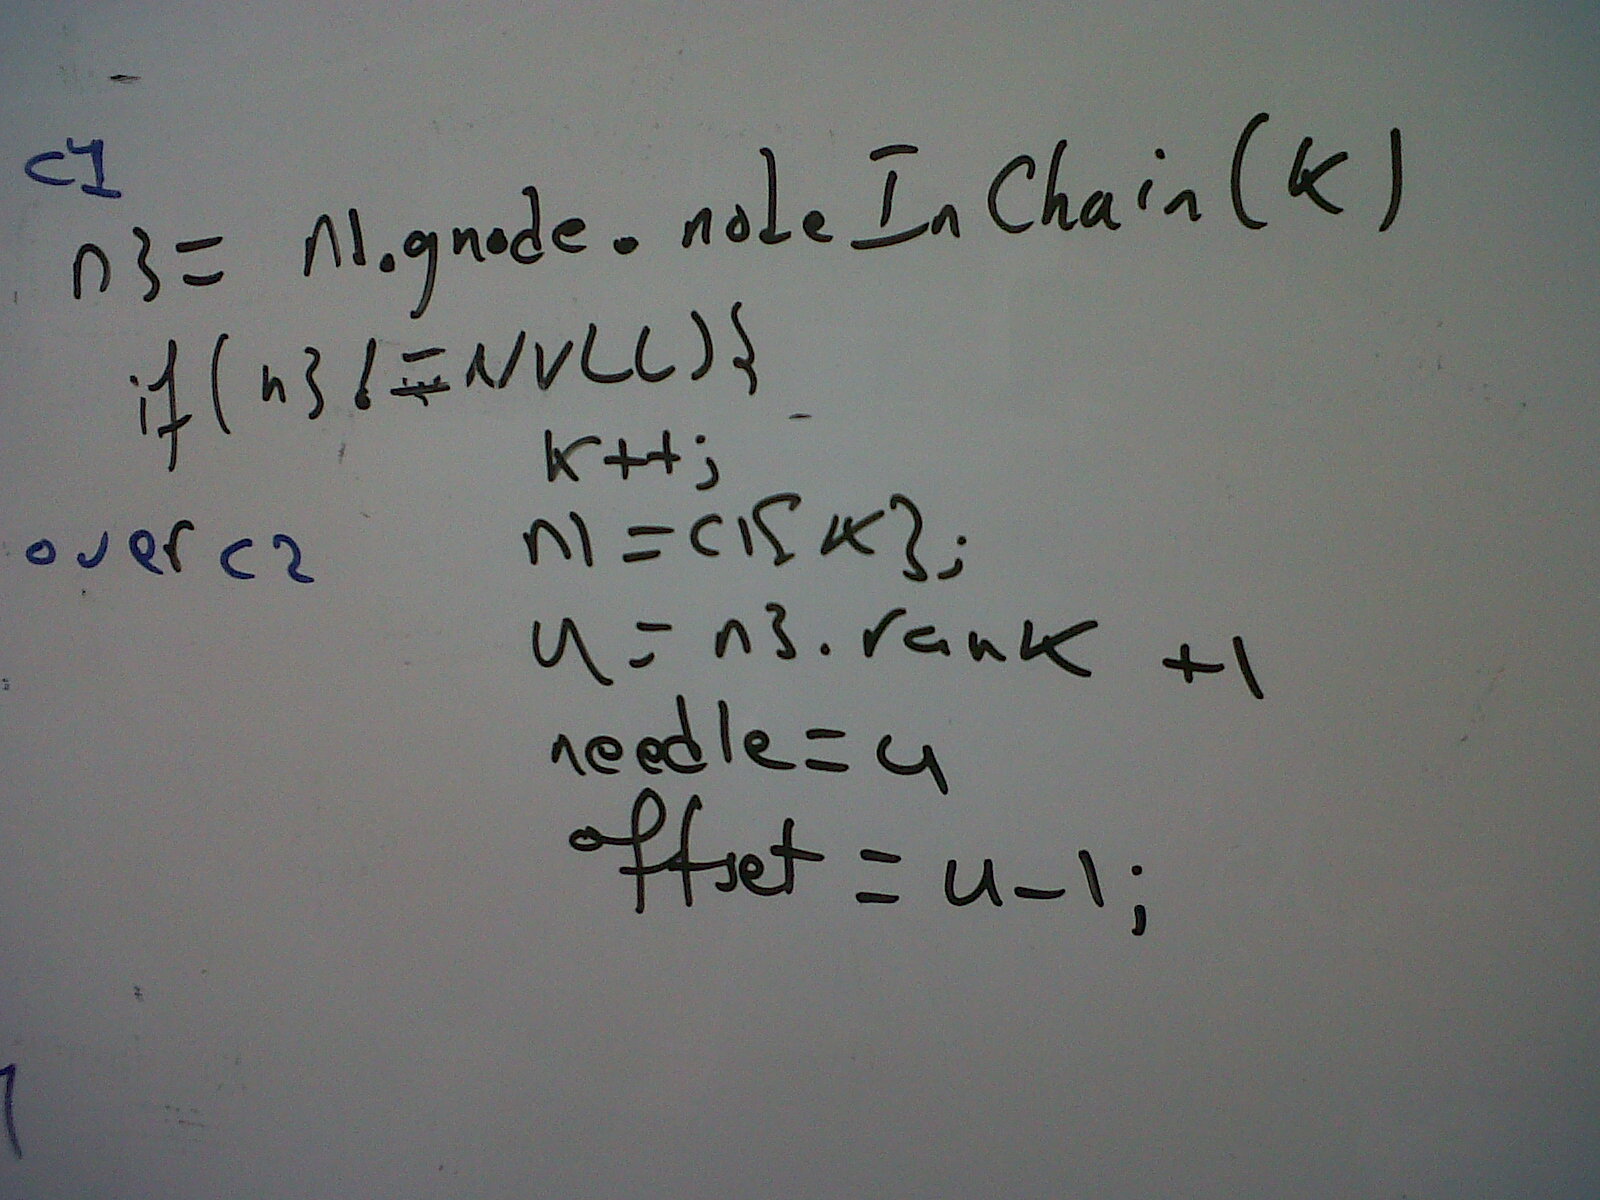 c1
n3 = n1.gnode.nodeInChain(k)
if(n3 != NULL){
k++;
over c2
n1 = c1[k];
u = n3.rank +1
needle = u
offset = u-1;